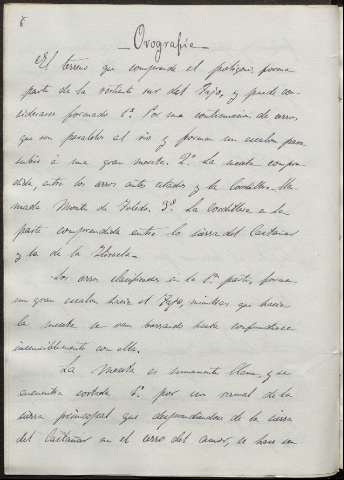 8
Orografía
El terreno que comprende el polígono, forma
parte de la vertiente sur del Tajo, y puede con-
siderarse formado 1º Por una continuación de cerros
que son paralelos al rio y forman un escalon para
subir á una gran meseta. 2º La meseta compren-
dida, entre los cerros antes citados y la Cordillera lla-
mada Montes de Toledo. 3º La Cordillera o la
parte comprendida entre la sierra del Castañar
y la de
Los cerros clasificados en la 1ª parte, forman
un gran escalon hacia el Tajo, mientras que hacia
la meseta se van borrando hasta confundirse
insensiblemente con ella.
La Meseta es sumamente llana, y se
encuentra cortada 1º por un ramal de la
sierra principal que desprendiendose de la sierra
del Castañar en el cerro del amor, se hace con